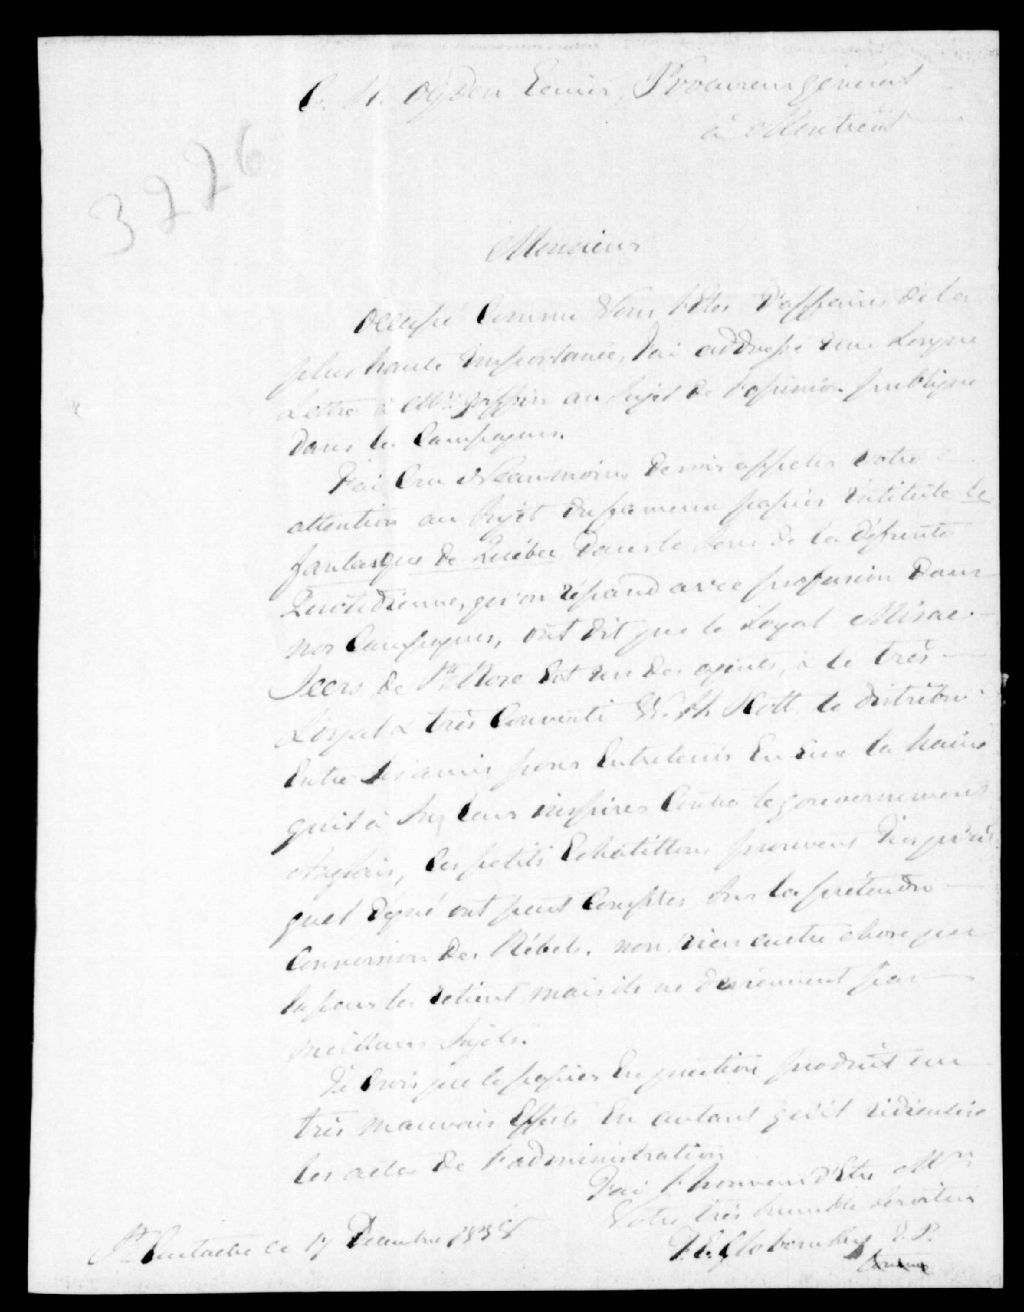 C. R. Ogden Ecuier, Procureur général
à Montréal
3226
Monsieur
Occupé Comme Vous Etes D'affaires de la
plus haute importance, J'ai addressé une Longue
Lettre à Mr. Griffin au Sujet de l'opinion publique
dans les Campagnes.
J'ai Cru Néanmoins devoir appeler votre
attention au Sujet du fameux papier intitulé le
fantasque de Québec, dans le Sens de la défunte
Quotidienne, qu'on répand avec profusion dans
nos Campagnes, ont dit que le Loyal
de Ste Rose Est un des agents, & le très
Loyal & très Converti W. H. Scott le distribu
Entre Ses amis pour Entretenir En Eux la haine
qu'il à Su leur inspirer Contre le gouvernement
Anglais, Ces petits Echatillons prouvent Jusqu'à
quel dégré ont peut Compter Sur la prétendu
Conversion des Rébels. non, rien autre chose que
la peur les retient mais ils ne deviennent pas
meilleurs Sujets.
Je Crois que le papier En question produit un
très mauvais Effets En autant qu'il ridiculise
les actes de l'administration
J'ai l'honneur d'Etre Mr
Votre très humble Serviteur
F. E. Globensky J. P.
St Eustache ce 17 Decembre 1838